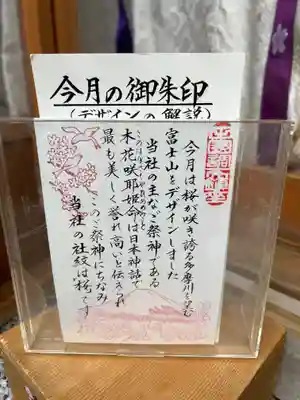 今月の御朱印
(デザインの解説)
今月は桜が咲き誇る多摩川と
富士山をデザインしました
当社の主なご祭神である
木花咲耶姫命は日本神話で
最も美しく誉れ高いと伝えられ
このご祭神にちなみ
当社の社紋は桜です